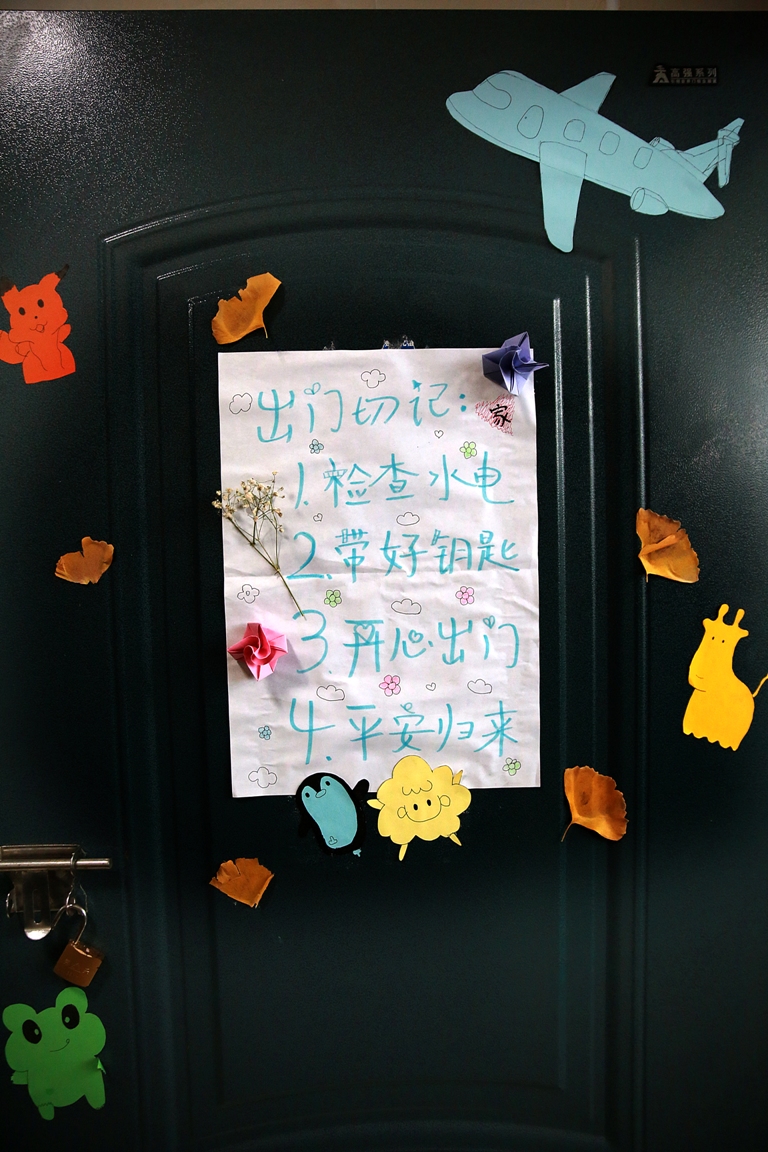 高强系列
出门切记:
家
1.检查水电
2.带好钥匙
3.开心出门
4.平安归来